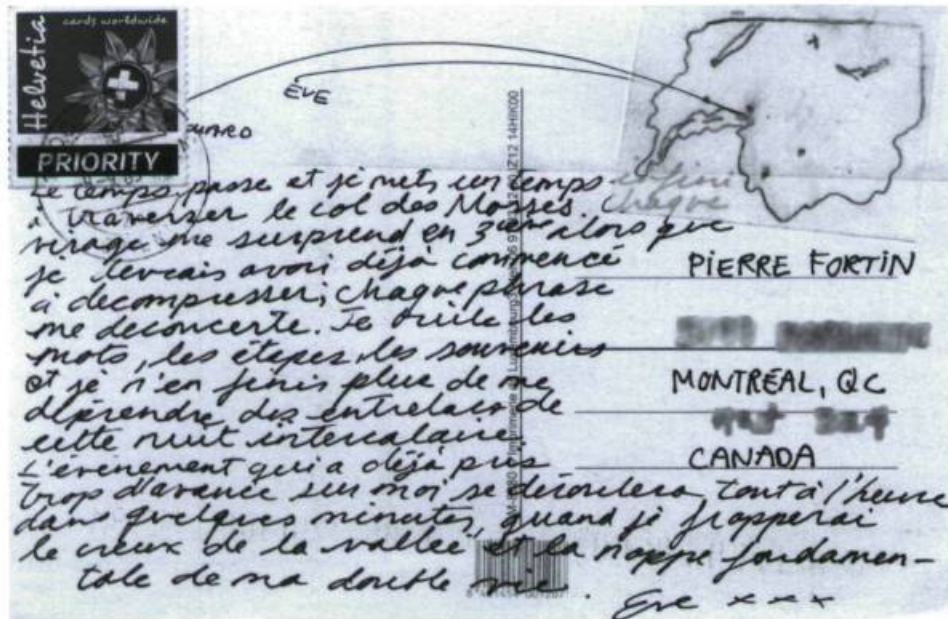 cards worldwide
Helvetia
PRIORITY
EVE
Le temps passe et je mets un temps infini
à traverser le col des Mosses. Chaque
virage me surprend en 3ième alors que
je devrais avoir déjà commencé
à décompresser; chaque phrase
me déconcerte. Je brûle les
mots, les étapes, les souvenirs
et je n'en finis plus de me
déprendre des entrelacs de
cette nuit intercalaire.
L'événement qui a déjà pris
trop d'avance sur moi se déroulera tout à l'heure
dans quelques minutes, quand je frapperai
le creux de la vallée et la nappe fondamen-
tale de ma double vie.
Eve x x x
PIERRE FORTIN
MONTREAL, QC
CANADA